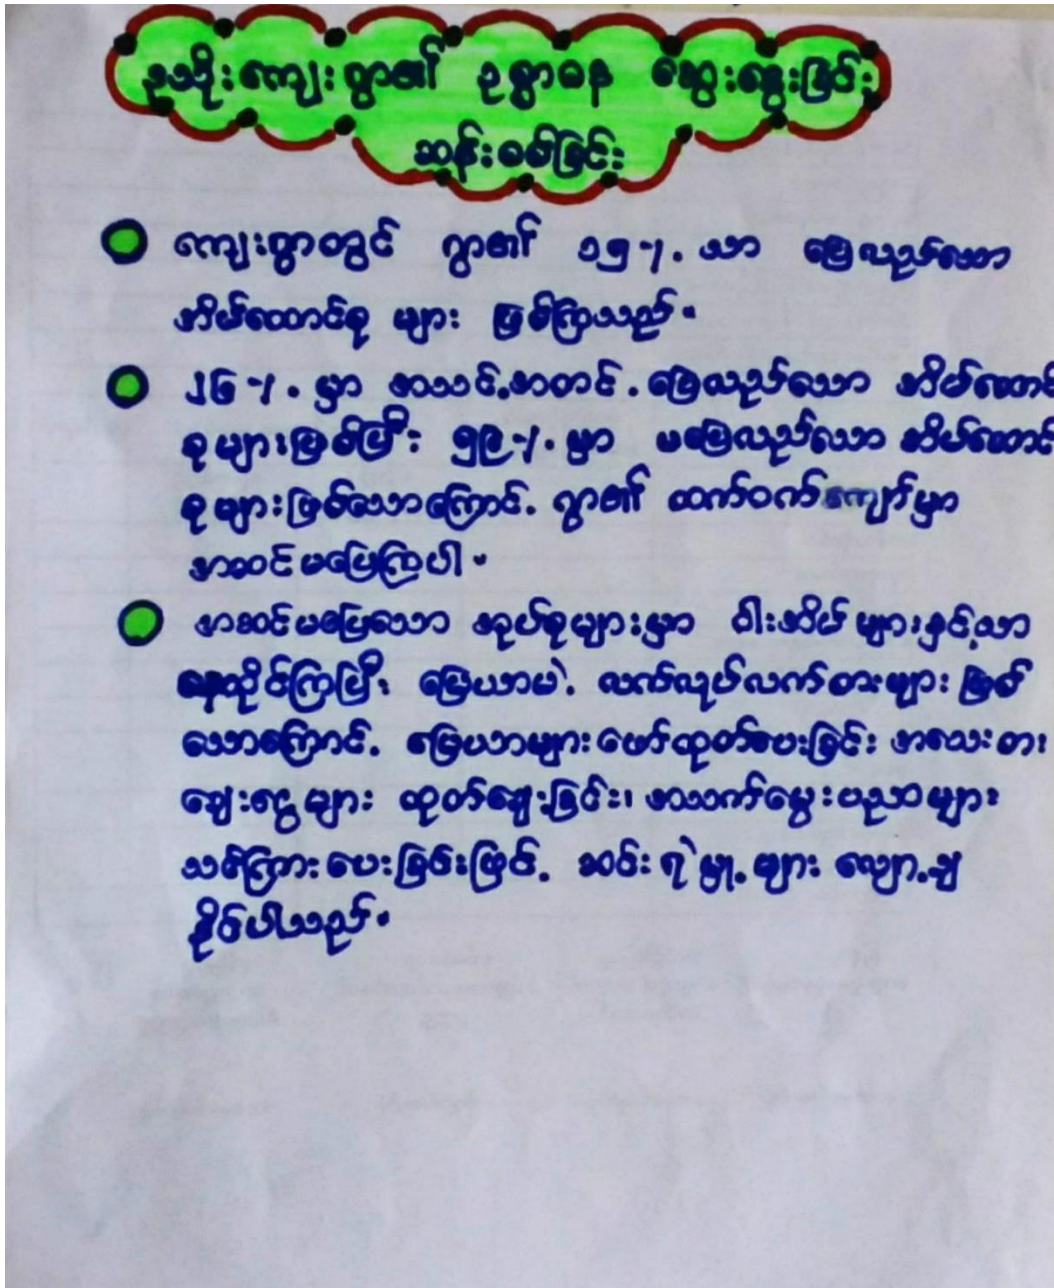 ဒုသိုးကျေးရွာ၏ ဥစ္စာဓန ဆွေးနွေးခြင်း
ဆန်းစစ်ခြင်း
ကျေးရွာတွင် ရွာ၏ ၁၅-/. သာ ပြေလည်သော
အိမ်ထောင်စု များ ဖြစ်ကြသည်။
၂၆-/. မှာ အသင့်အတင့် ပြေလည်သော အိမ်ထောင်
စုများဖြစ်ပြီး ၅၉-/. မှာ မပြေလည်သော အိမ်ထောင်
စုများဖြစ်သောကြောင့် ရွာ၏ ထက်ဝက်ကျော်မှာ
အဆင်မပြေကြပါ။
အဆင်မပြေသော အုပ်စုများမှာ ဝါးအိမ်များနှင့်သာ
နေထိုင်ကြပြီး မြေယာမဲ့ လက်လုပ်လက်စားများ ဖြစ်
သောကြောင့် မြေယာများဖော်ထုတ်ပေးခြင်း အသေးစား
ချေးငွေများ ထုတ်ချေးခြင်း၊ အသက်မွေးပညာများ
သင်ကြားပေးခြင်းဖြင့် ဆင်းရဲမှု့များ လျော့ချ
နိုင်ပါသည်။